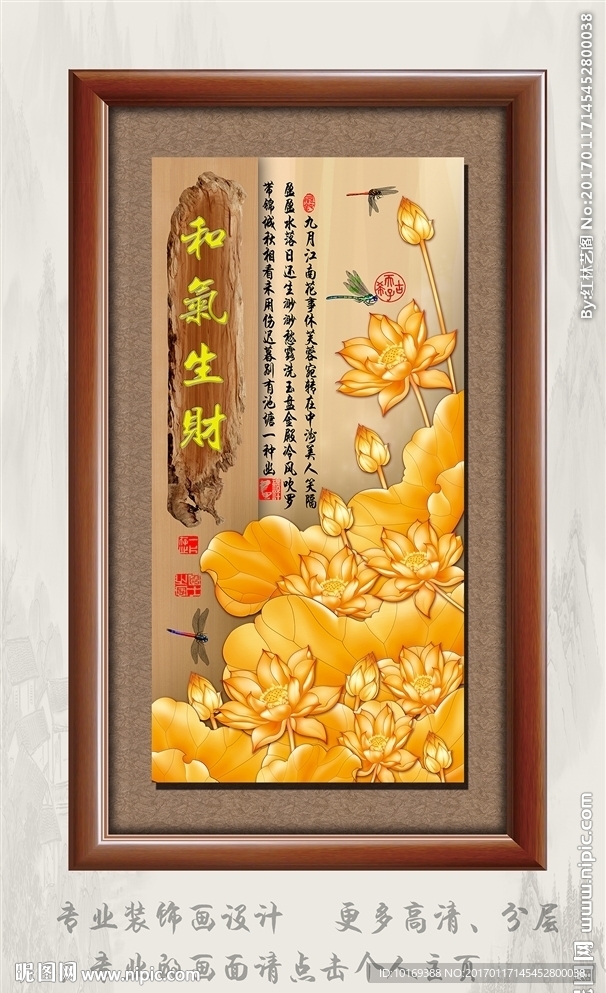 和氣生財
九月江南花事休芙蓉宛转在中洲美人笑隔
盈盈水落日还生渺渺愁露洗玉盘金殿冷风吹罗
带锦城秋相看未用伤迟暮别有池塘一种幽
古希天子
By:红林艺阁 No:20170117145452800038
专业装饰画设计 更多高清、分层
业的画面请点击个人主页
昵图网 www.nipic.com
ID:10169388 NO:20170117145452800038
www.nipic.com